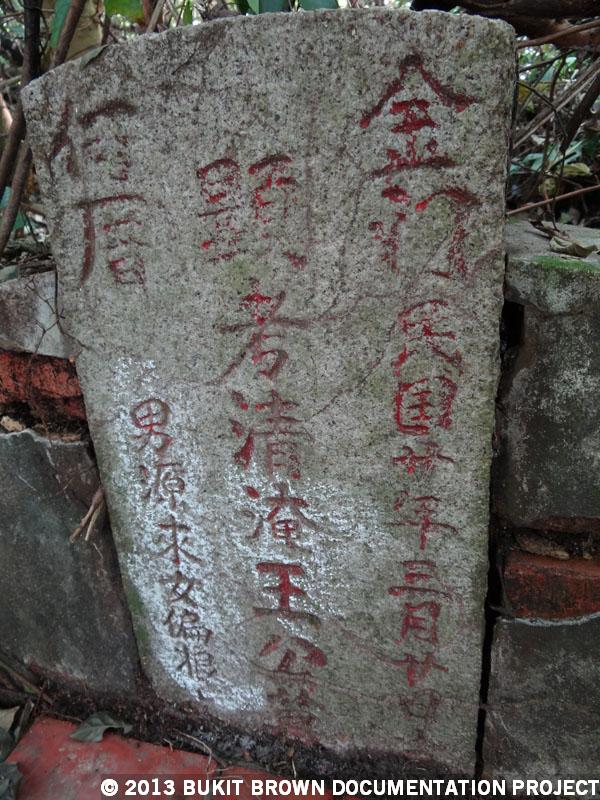 金門
民国廿年三月廿
顯考清淹王公墓
何厝
男源來女偏狼